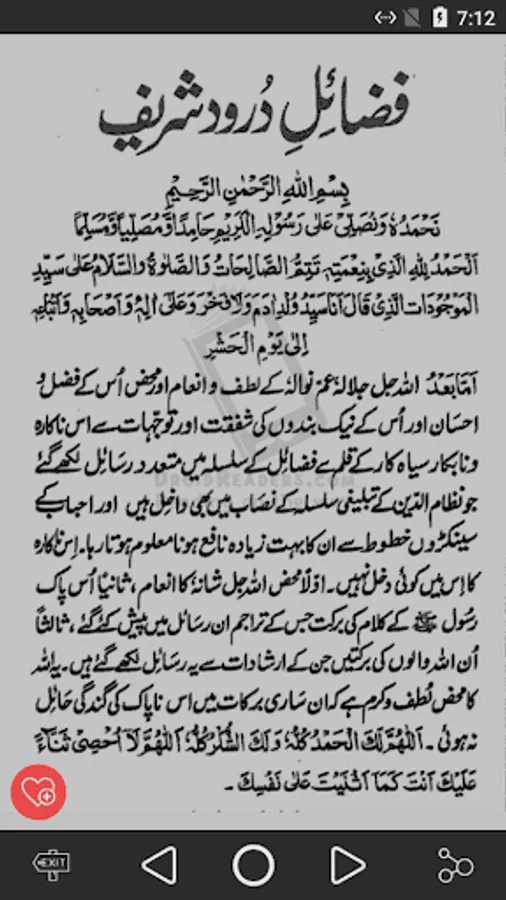 7:12
فضائلِ دُرود شریف
بِسْمِ اللهِ الرَّحْمٰنِ الرَّحِیْمِ
نَحْمَدُہٗ وَنُصَلِّیْ عَلٰی رَسُوْلِہِ الْکَرِیْمِ حَامِدًا وَّمُصَلِّیًا وَّمُسَلِّمًا
اَلْحَمْدُ لِلّٰہِ الَّذِیْ بِنِعْمَتِہٖ تَتِمُّ الصَّالِحَاتُ وَالصَّلٰوۃُ وَالسَّلَامُ عَلٰی سَیِّدِ
الْمَوْجُوْدَاتِ الَّذِیْ قَالَ اَنَا سَیِّدُ وُلْدِ اٰدَمَ وَلَا فَخْرَ وَعَلٰی اٰلِہٖ وَاَصْحَابِہٖ وَاَتْبَاعِہٖ
اِلٰی یَوْمِ الْحَشْرِ
اَمَّا بَعْدُ اللہ جل جلالہٗ عمّ نوالہٗ کے لطف و انعام اور محض اُس کے فضل و
احسان اور اُس کے نیک بندوں کی شفقت اور توجّہات سے اس ناکارہ
و نابکار سیاہ کار کے قلم سے فضائل کے سلسلہ میں متعدد رسائل لکھے گئے
جو نظام الدین کے تبلیغی سلسلہ کے نصاب میں بھی داخل ہیں اور احباب کے
سینکڑوں خطوط سے ان کا بہت زیادہ نافع ہونا معلوم ہوتا رہا۔ اِس ناکارہ
کا اِس میں کوئی دخل نہیں۔ اوّلاً محض اللہ جل شانہٗ کا انعام، ثانیًا اُس پاک
رسول ﷺ کے کلام کی برکت جس کے تراجم ان رسائل میں پیش کئے گئے، ثالثاً
اُن اللہ والوں کی برکتیں جن کے ارشادات سے یہ رسائل لکھے گئے ہیں۔ یہ اللہ
کا محض لُطف و کرم ہے کہ ان ساری برکات میں اس ناپاک کی گندگی حائل
نہ ہوئی۔ اَللّٰھُمَّ لَکَ الْحَمْدُ کُلُّہٗ وَلَکَ الشُّکْرُ کُلُّہٗ اَللّٰھُمَّ لَآ اُحْصِیْ ثَنَآءً
عَلَیْکَ اَنْتَ کَمَآ اَثْنَیْتَ عَلٰی نَفْسِکَ۔
DROIDREADERS.COM
EXIT